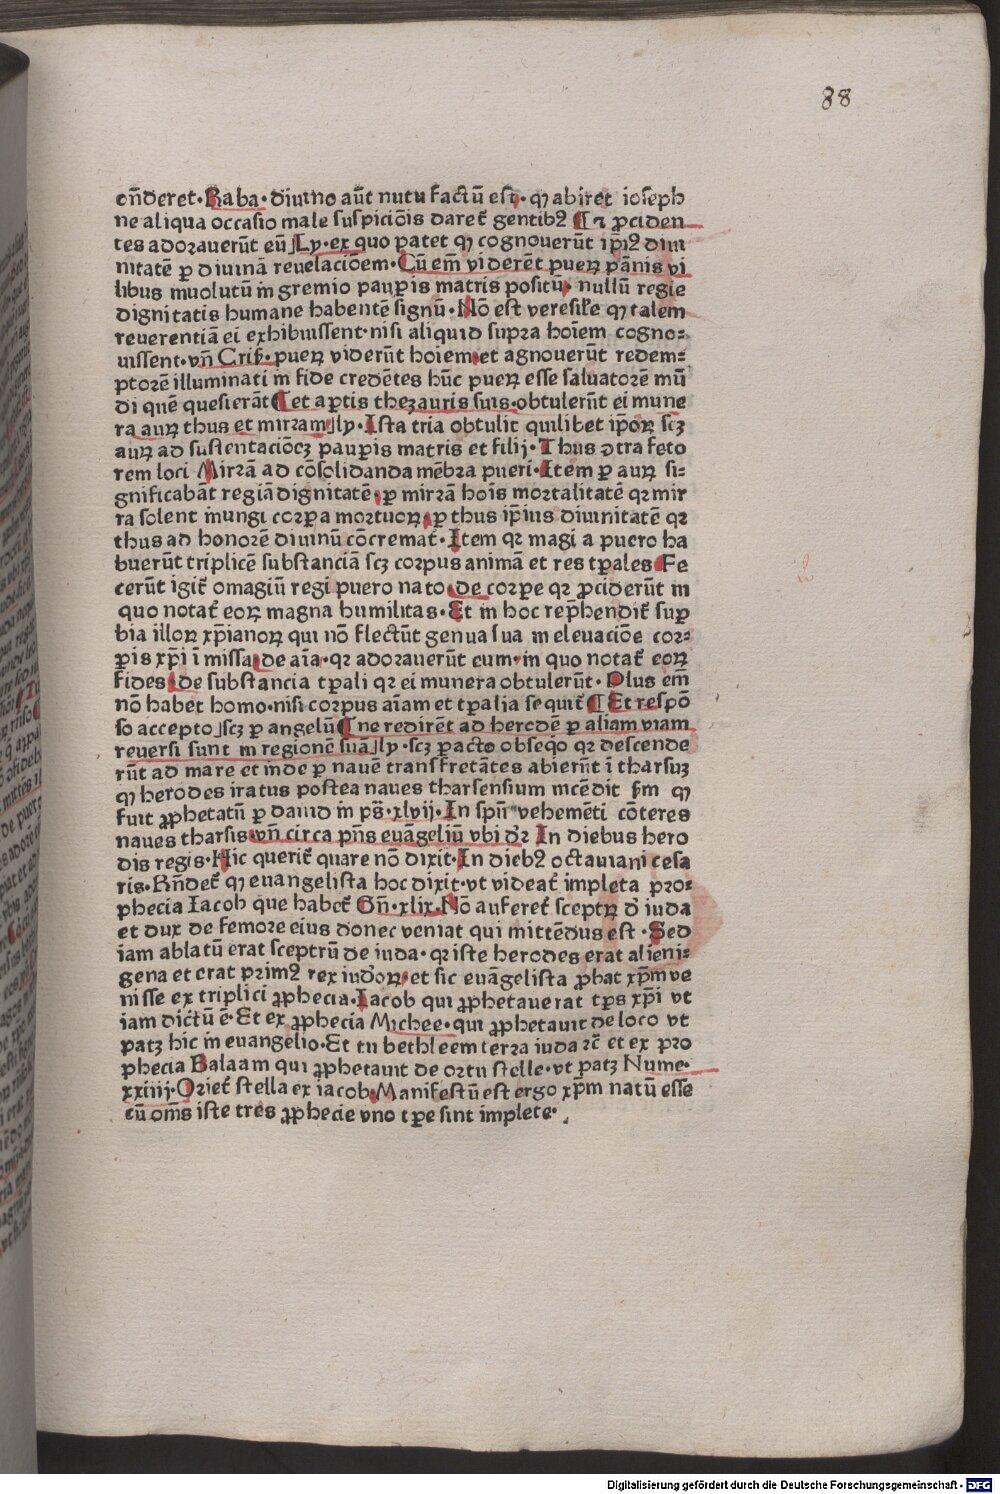 88
en̄deret·Raba·diuino aūt nutu factū est·qꝫ abiret ioseph
ne aliqua occasio male suspiciōis daret̄ gentibꝰ ¶ ⁊ ꝓciden
tes adorauerūt eū⌋Ly·ex quo patet qꝫ cognouerūt ip̄iꝰ diui
nitatē ꝑ diuinā reuelaciōem·Cū em̄ viderēt pueꝝ pānis vi
libus inuolutū in gremio pauꝑis matris positū· nullū regie
dignitatis humane habentē signū·Nō est veresile qꝫ talem
reuerentiā ei exhibuissent·nisi aliquid supra hoiem cogno⸗
uissent·vn̄ Cris̄·pueꝝ viderūt hoiem·et agnouerūt redem⸗
ptorē illuminati in fide credētes hūc pueꝝ esse saluatorē mū
di quē quesierāt ¶ et aꝑtis thezauris suis·obtulerūt ei mune
ra auꝝ thus et mirram⌋ly·Ista tria obtulit quilibet ip̄oꝝ scꝫ
auꝝ ad sustentaciōeꝫ pauꝑis matris et filij·Thus ꝯtra feto
rem loci Mirrā ad cōsolidanda mēbra pueri·Item ꝑ auꝝ si⸗
gnificabāt regiā dignitatē·ꝑ mirrā hoīs mortalitatē qꝛ mir
ra solent inungi corꝑa mortuoꝝ·ꝑ thus ip̄ius diuinitatē qꝛ
thus ad honorē diuinū cōcremat̄·Item qꝛ magi a puero ha
buerūt triplicē substanciā scꝫ corpus animā et res tꝑales Fe
cerūt igit̄ omagiū regi puero nato·de corꝑe qꝛ ꝓciderūt in
quo notat̄ eoꝝ magna humilitas·Et in hoc rep̄hendit̄ suꝑ
bia illoꝝ xp̄ianoꝝ qui nō flectūt genua sua in eleuaciōe cor⸗
ꝑis xp̄i ī missa·de aīa·qꝛ adorauerūt eum·in quo notat̄ eoꝝ
fides·de substancia tꝑali qꝛ ei munera obtulerūt·Plus em̄
nō habet homo·nisi corpus aīam et tꝑalia sequit̄ ¶ Et respō
so accepto⌋scꝫ ꝑ angelū ¶ ne redirēt ad herodē ꝑ aliam viam
reuersi sunt in regionē suā⌋ly·scꝫ ꝑacto obseqͦo qꝛ descende
rūt ad mare et inde ꝑ nauē transfretātes abierūt ī tharsuꝫ
qꝫ herodes iratus postea naues tharsensium incēdit ẜm qꝫ
fuit ꝓphetatū ꝑ dauid in ps̄·xlvij·In spū vehemēti cōteres
naues tharsis·vn̄ circa pn̄s euāgeliū vbi dꝛ In diebus hero
dis regis·Hic querit̄ quare nō dixit·In diebꝰ octauiani cesa
ris·Rn̄det̄ qꝫ euangelista hoc dixit·vt videat̄ impleta pro⸗
phecia Iacob que habet̄ Gn̄·xlix·Nō auferet̄ sceptꝝ d̄ iuda
et dux de femore eius donec veniat qui mittēdus est·Sed
iam ablatū erat sceptrū de iuda·qꝛ iste herodes erat alieni⸗
gena et erat primꝰ rex iudoꝝ·et sic euāgelista ꝓbat xp̄m ve
nisse ex triplici ꝓphecia·Iacob qui ꝓphetauerat tp̄s xp̄i vt
iam dictū ē·Et ex ꝓphecia Michee·qui ꝓphetauit de loco vt
patꝫ hic in euangelio·Et tu bethleem terra iuda ⁊c̄ et ex pro
phecia Balaam qui ꝓphetauit de ortu stelle·vt patꝫ Nume·
xxiiij·Oriet̄ stella ex iacob·Manifestū est ergo xp̄m natū esse
cū om̄s iste tres ꝓphecie vno tꝑe sint implete·
Digitalisierung gefördert durch die Deutsche Forschungsgemeinschaft · DFG